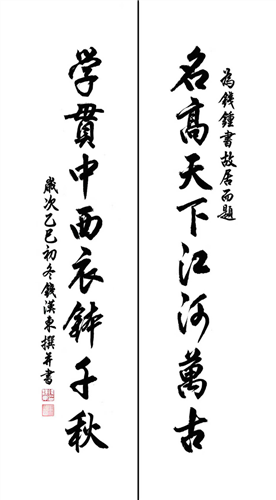 為錢鍾書故居而題
名高天下江河萬古
学貫中西衣鉢千秋
歲次乙巳初冬錢漢東撰并書